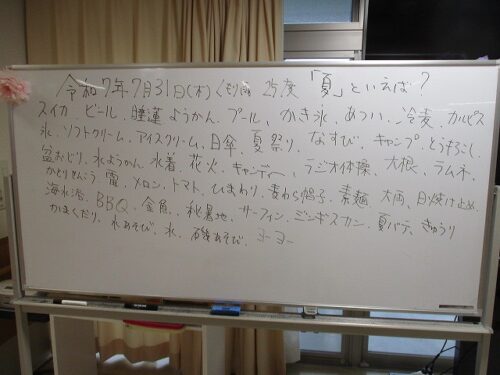 令和7年7月31日(木) くもり 25度 「夏」といえば?
スイカ、ビール、睡蓮、ようかん、プール、かき氷、あつい、冷麦、カルピス
氷、ソフトクリーム、アイスクリーム、日傘、夏祭り、なすび、キャンプ、とうもろこし、
盆おどり、水ようかん、水着、花火、キャンディー、ラジオ体操、大根、ラムネ、
かとりせんこう、雷、メロン、トマト、ひまわり、麦わら帽子、素麺、大雨、日焼け止め、
海水浴、BBQ、金魚、避暑地、サーフィン、ジンギスカン、夏バテ、きゅうり
水あそび、水、磯あそび、ヨーヨー